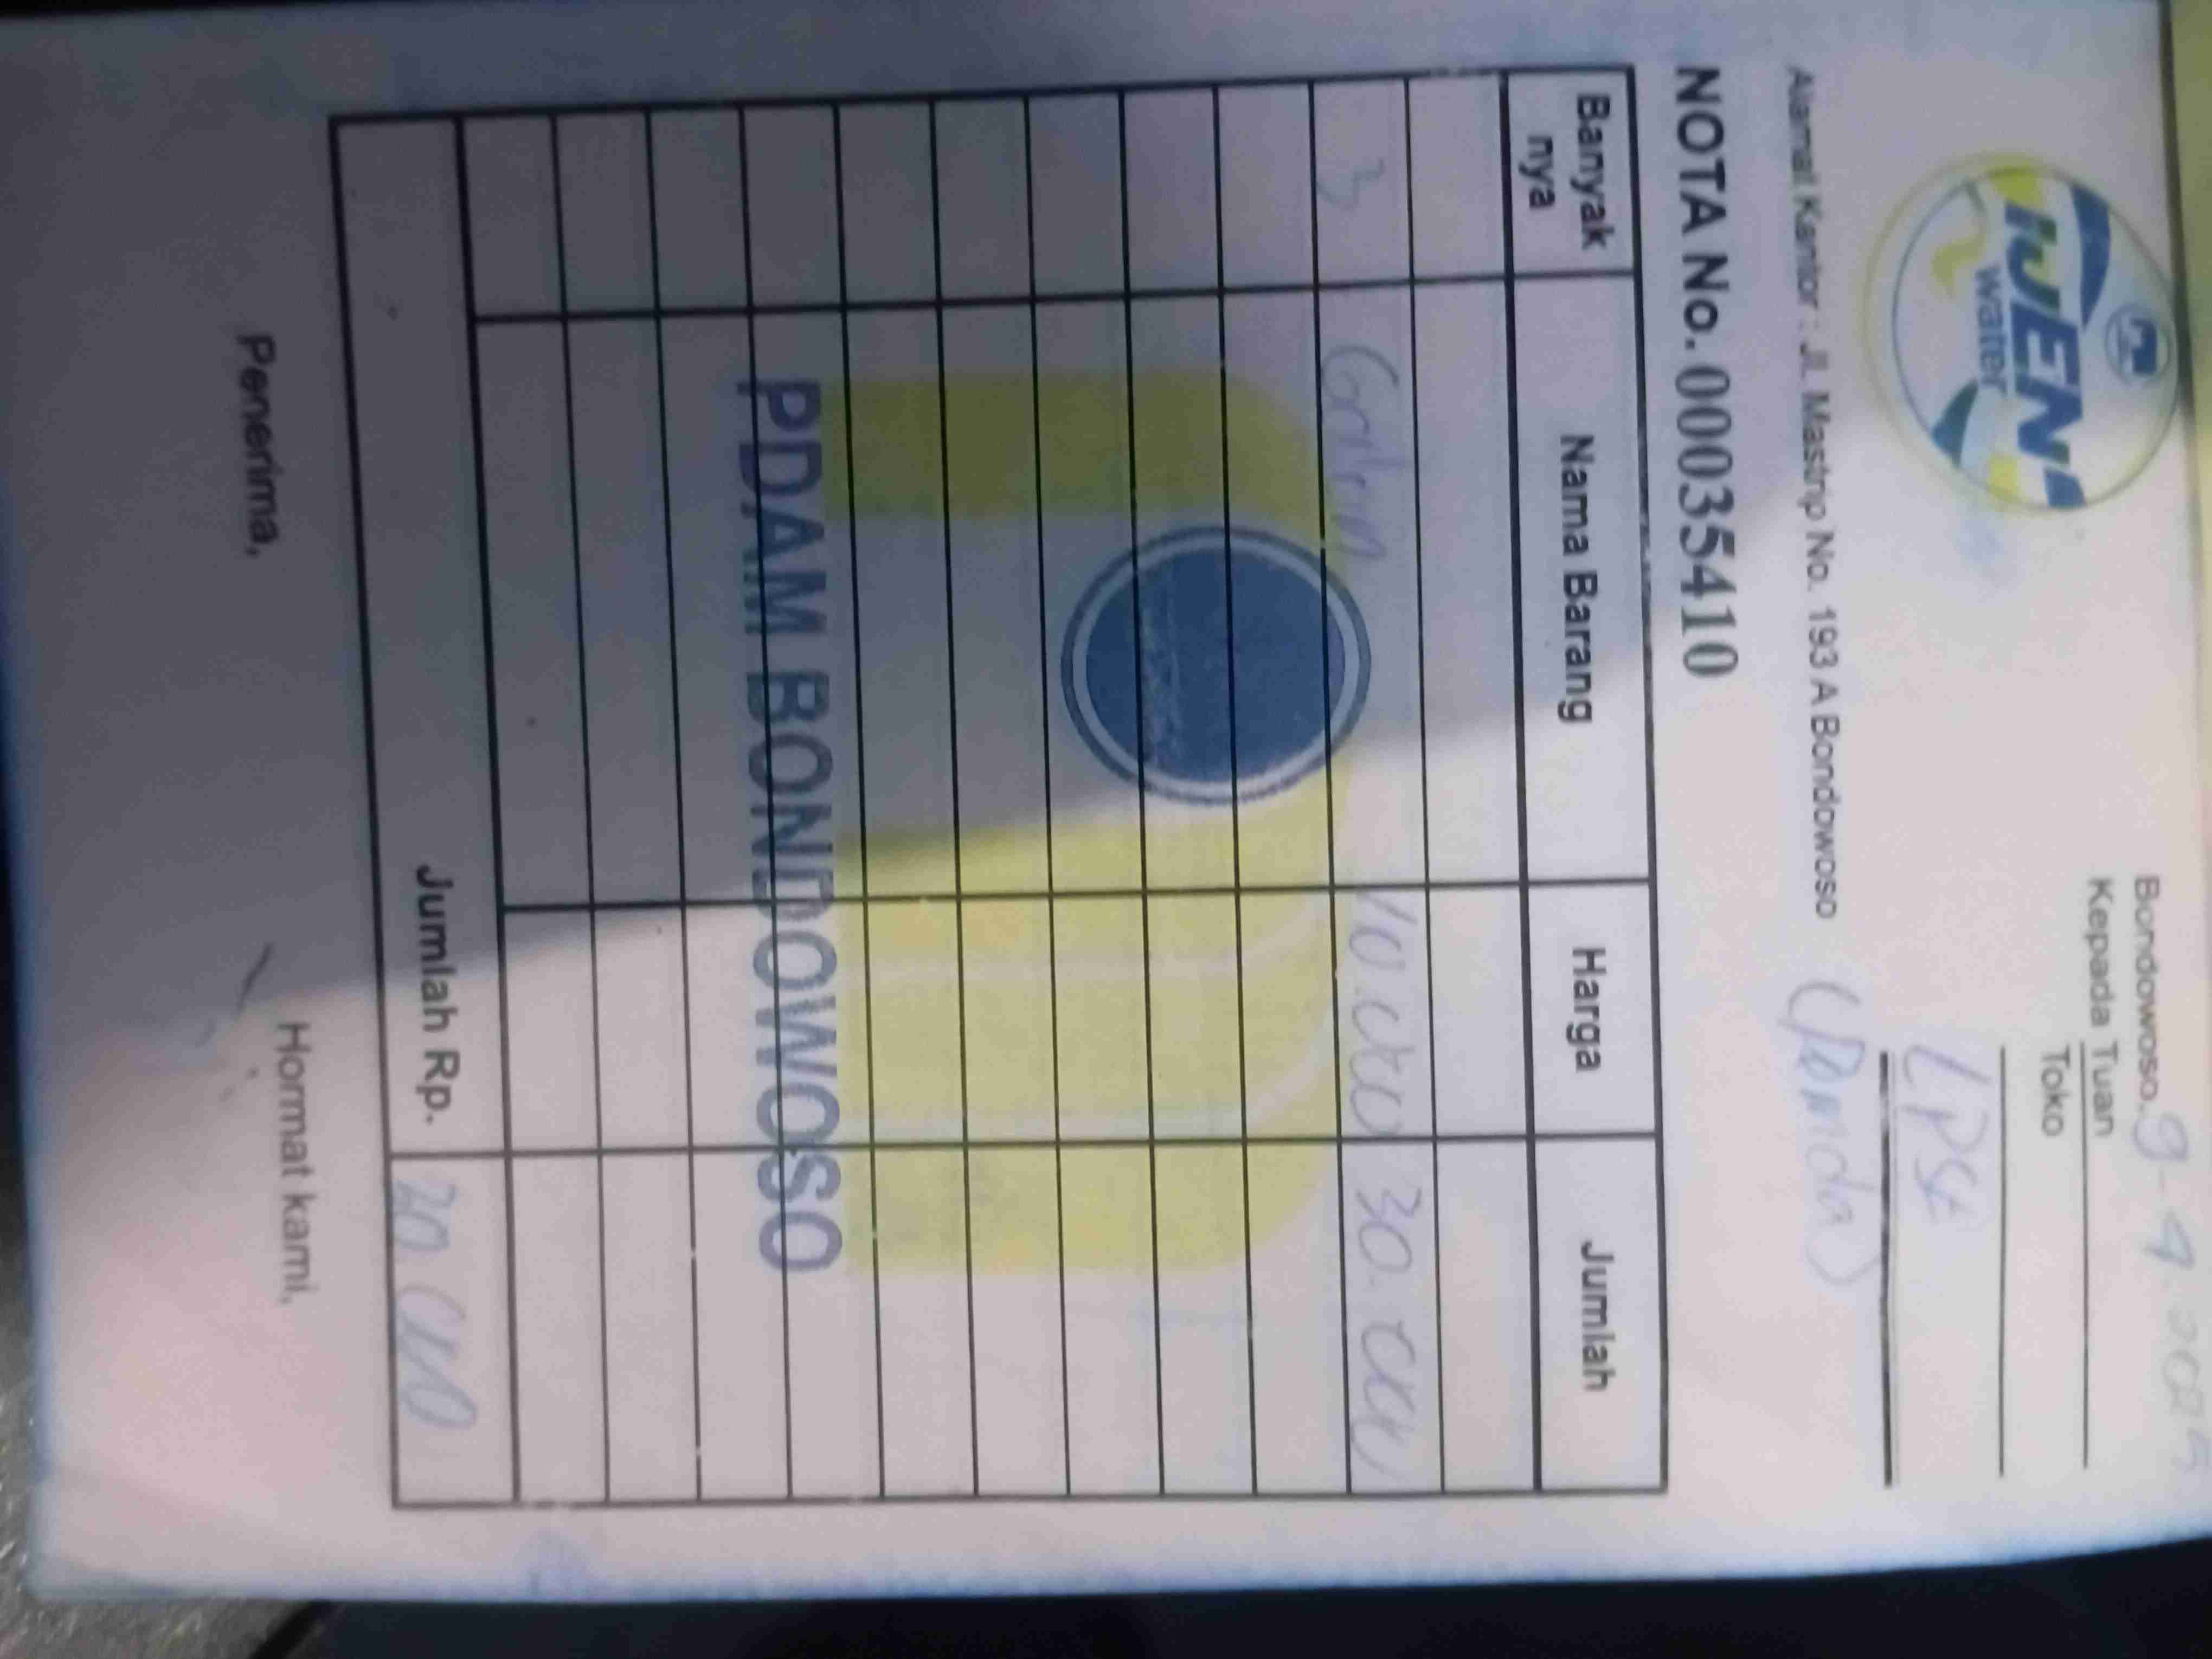 IJEN
water
Bondowoso, 9-4-2025
Kepada Tuan
Toko
LPSE
(Pemda)
Alamat Kantor : Jl. Mastrip No. 193 A Bondowoso
NOTA No. 00035410
Banyak nya Nama Barang Harga Jumlah
3 Galon 10.000 30.000
PDAM BONDOWOSO
Jumlah Rp. 30.000
Penerima, Hormat kami,